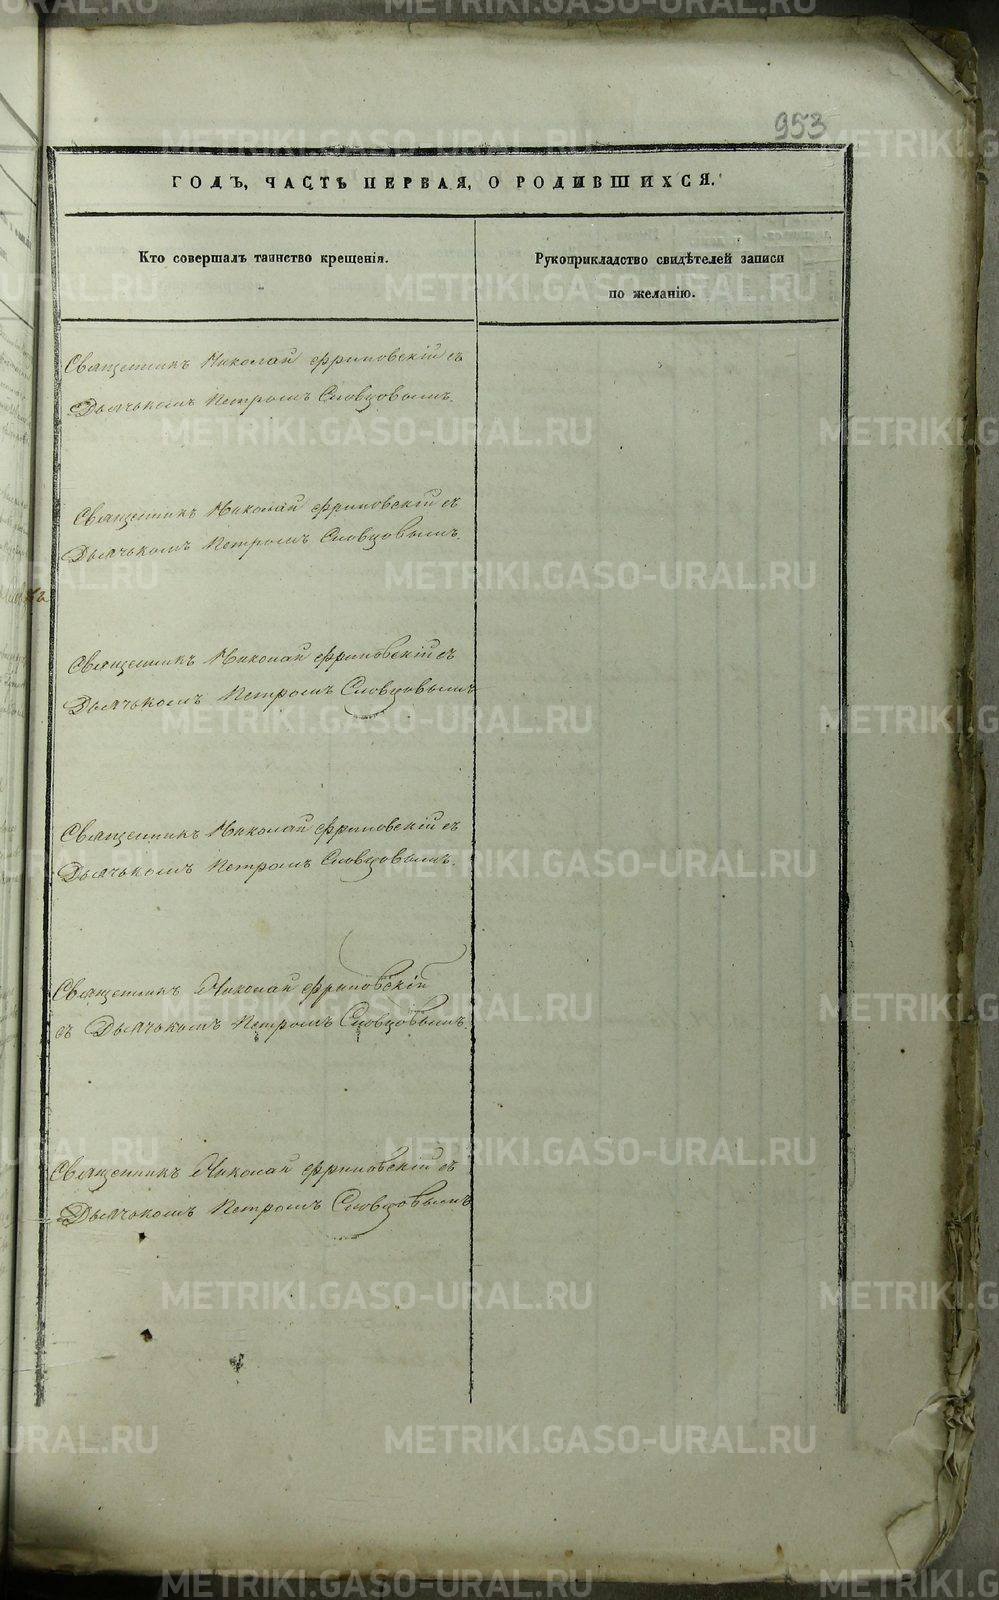 953
ГОДЪ, ЧАСТЬ ПЕРВАЯ, О РОДИВШИХСЯ.
Кто совершалъ таинство крещенія.
Рукоприкладство свидѣтелей записи
по желанію.
Священникъ Николай Фриновскій съ
Дьячькомъ Петромъ Словцовымъ.
Священникъ Николай Фриновскій съ
Дьячькомъ Петромъ Словцовымъ.
Священникъ Николай Фриновскій съ
Дьячькомъ Петромъ Словцовымъ
Священникъ Николай Фриновскій съ
Дьячькомъ Петромъ Словцовымъ.
Священникъ Николай Фриновскій
съ Дьячькомъ Петромъ Словцовымъ
Священникъ Николай Фриновскій съ
Дьячькомъ Петромъ Словцовымъ
METRIKI.GASO-URAL.RU